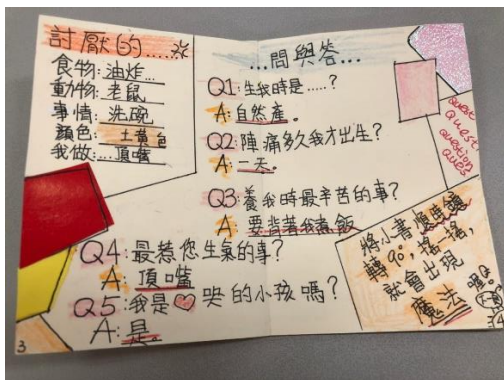 討厭的.....
食物: 油炸...
動物: 老鼠
事情: 洗碗
顏色: 土黃色
我做:...頂嘴
...問與答...
Q1: 生我時是.....?
A: 自然產。
Q2: 陣痛多久我才出生?
A: 一天。
Q3: 養我時最辛苦的事?
A: 要背著我煮飯
Q4: 最惹您生氣的事?
A: 頂嘴
Q5: 我是 哭的小孩嗎?
A: 是。
quest
Quest
question
ques
將小書順時鐘
轉90°,搖一搖,
就會出現
魔法喔!
3
4